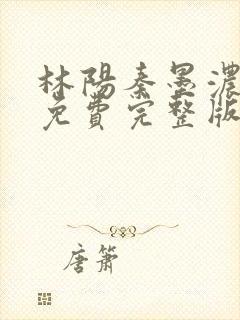 林陽秦墨濃
免費完整版
唐箫